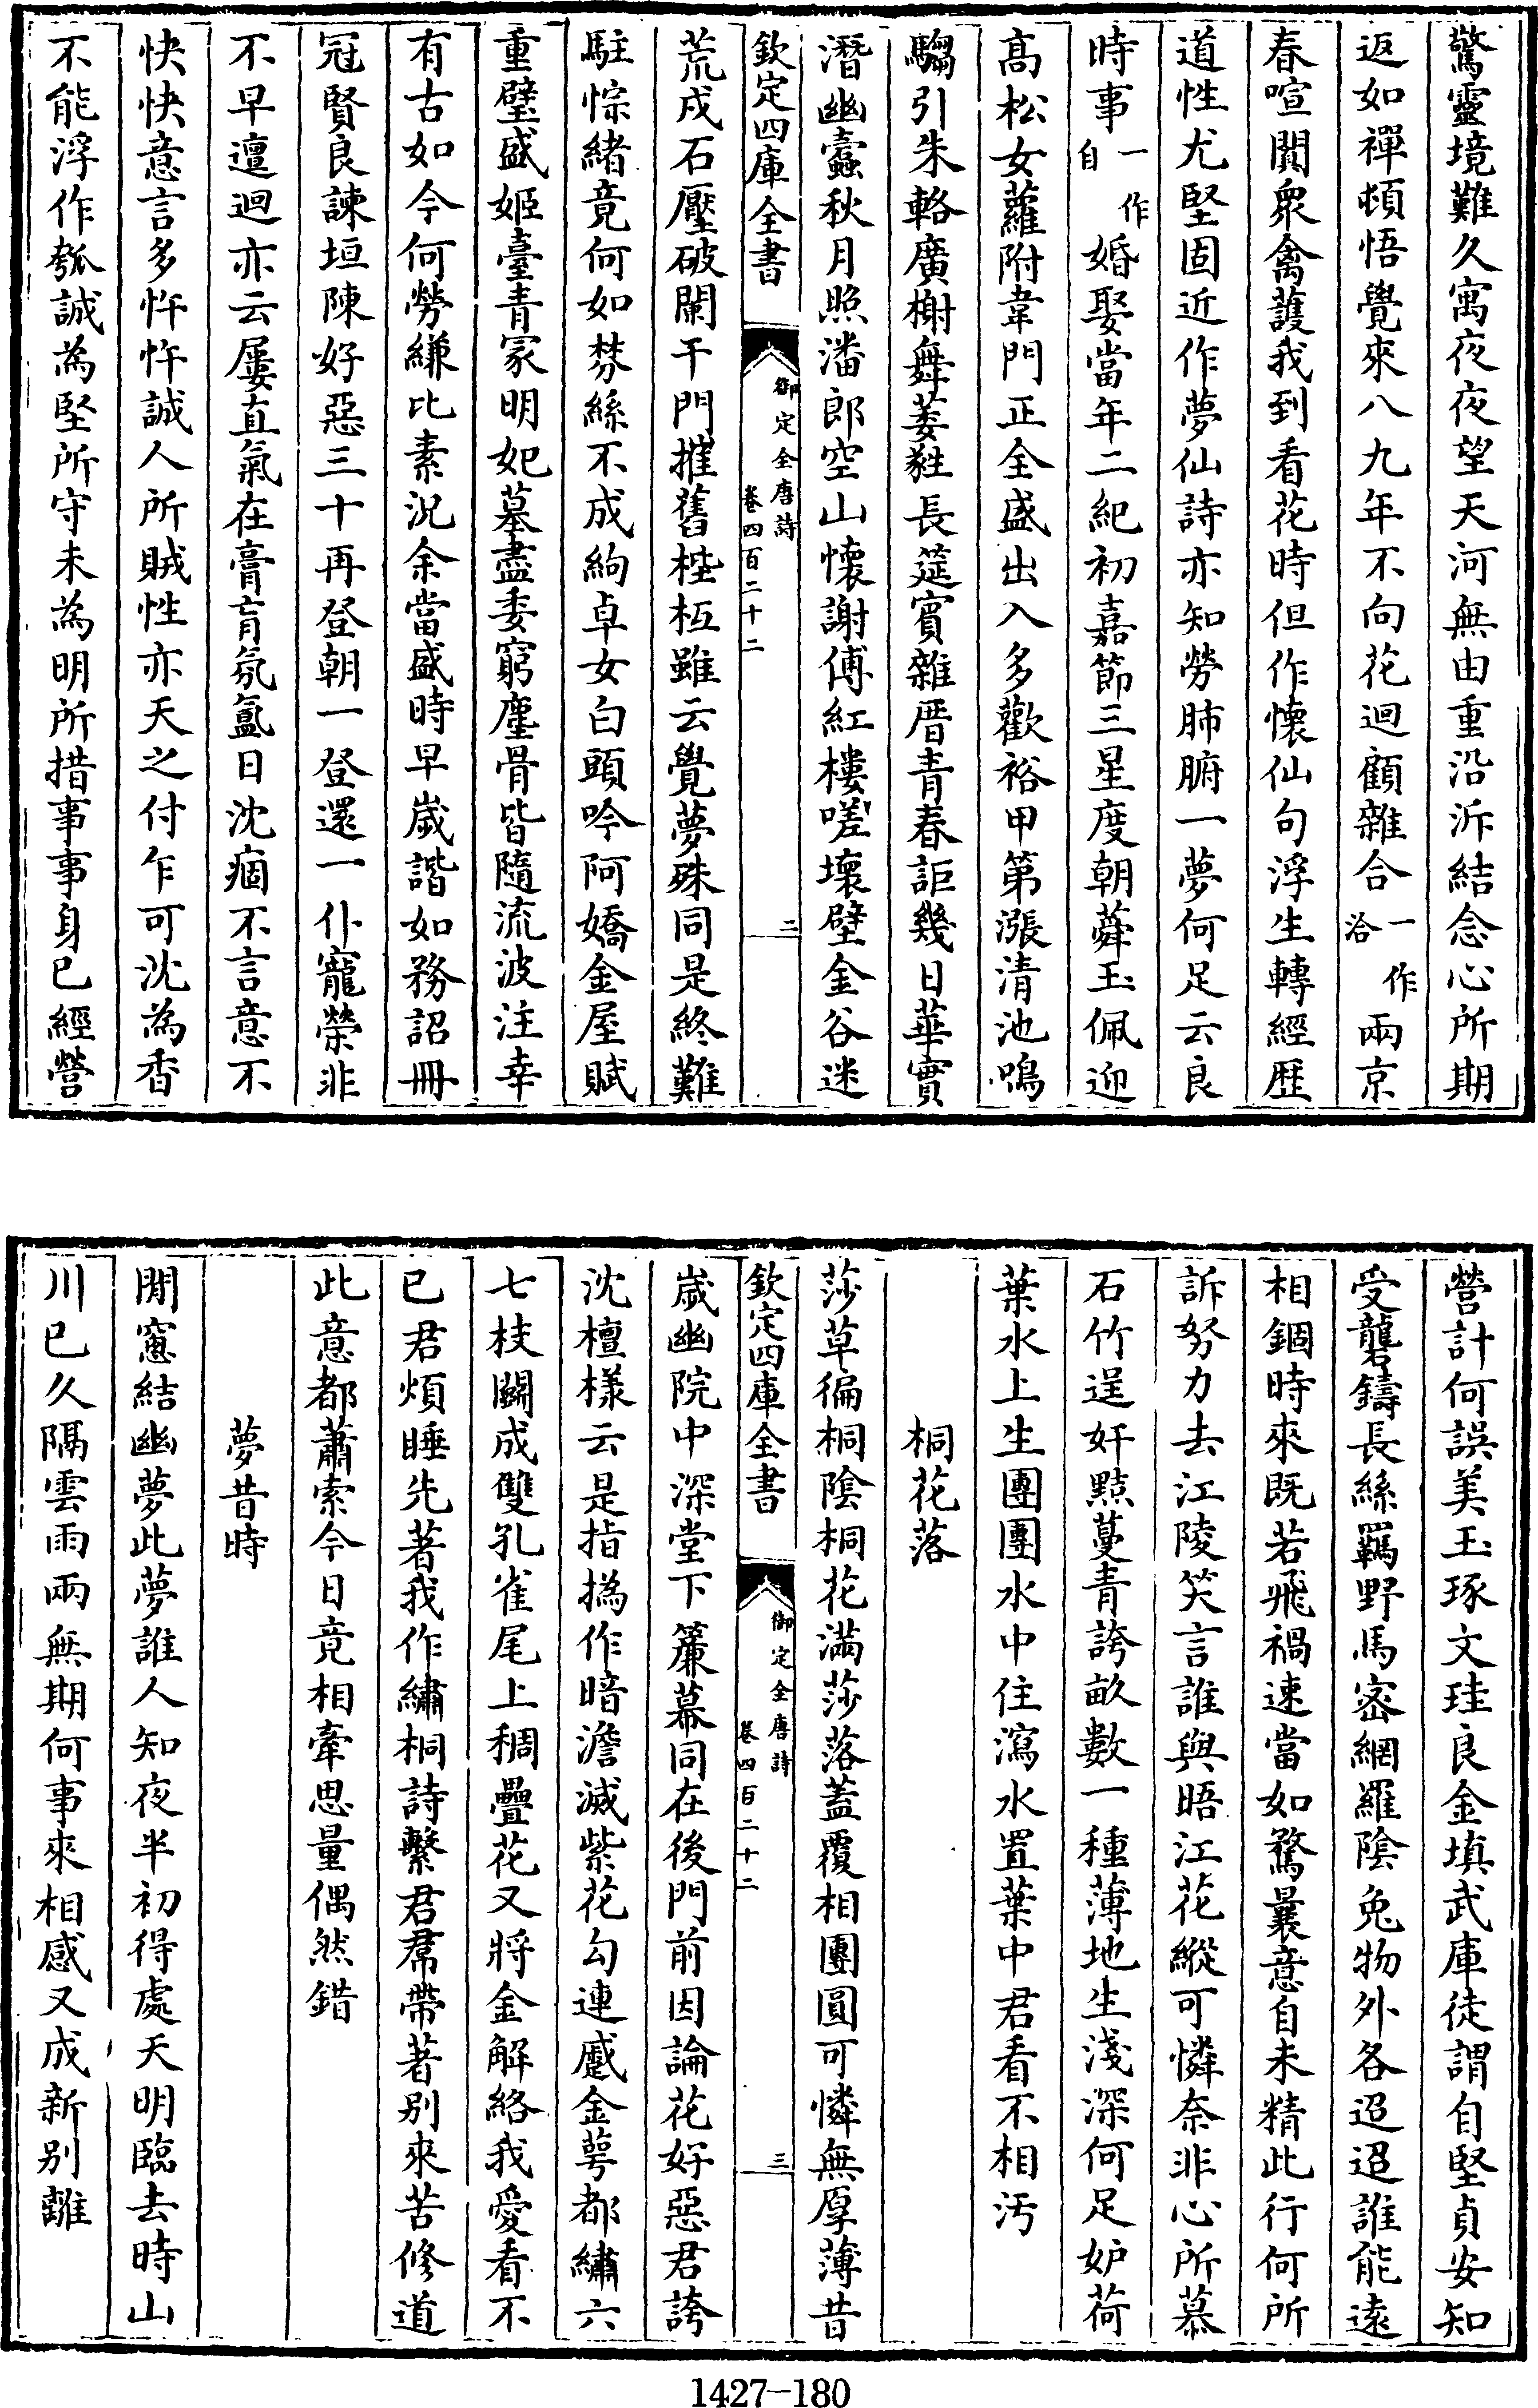 驚靈境難久寓夜夜望天河無由重沿泝結念心所期
返如禪頓悟覺來八九年不向花迴顧雜合一作洽兩京
春喧闐衆禽護我到看花時但作懷仙句浮生轉經歴
道性尤堅固近作夢仙詩亦知勞肺腑一夢何足云良
時事一作自婚娶當年二紀初嘉節三星度朝蕣玉佩迎
高松女蘿附韋門正全盛出入多歡裕甲第漲清池鳴
騶引朱輅廣榭舞萎㽔長筵賓雜厝青春詎幾日華實
潛幽蠹秋月照潘郎空山懷謝傅紅樓嗟壞壁金谷迷
欽定四庫全書 御定全唐詩 卷四百二十二 二
荒戍石壓破闌干門摧舊梐枑雖云覺夢殊同是終難
駐悰緒竟何如棼絲不成絇卓女白頭吟阿嬌金屋賦
重璧盛姬臺青冢明妃墓盡委窮塵骨皆隨流波注幸
有古如今何勞縑比素況余當盛時早歲諧如務詔冊
冠賢良諫垣陳好惡三十再登朝一登還一仆寵榮非
不早邅迴亦云屢直氣在膏肓氛氲日沈痼不言意不
快快意言多忤忤誠人所賊性亦天之付乍可沈為香
不能浮作瓠誠為堅所守未為明所措事事身已經營
營計何誤美玉琢文珪良金填武庫徒謂自堅貞安知
受礱鑄長絲羈野馬密網羅陰兔物外各迢迢誰能遠
相錮時來既若飛禍速當如騖曩意自未精此行何所
訴努力去江陵笑言誰與晤江花縱可憐奈非心所慕
石竹逞奸黠蔓青誇畝數一種薄地生淺深何足妒荷
葉水上生團團水中住瀉水置葉中君看不相污
桐花落
莎草徧桐陰桐花滿莎落蓋覆相團圓可憐無厚薄昔
欽定四庫全書 御定全唐詩 卷四百二十二 三
歳幽院中深堂下簾幕同在後門前因論花好惡君誇
沈檀様云是指撝作暗澹滅紫花勾連蹙金萼都繡六
七枝鬭成雙孔雀尾上稠疊花又將金解絡我愛看不
已君煩睡先著我作繡桐詩繫君裙帶著别來苦修道
此意都蕭索今日竟相牽思量偶然錯
夢昔時
閒窻結幽夢此夢誰人知夜半初得處天明臨去時山
川已久隔雲雨兩無期何事來相感又成新别離
1427-180